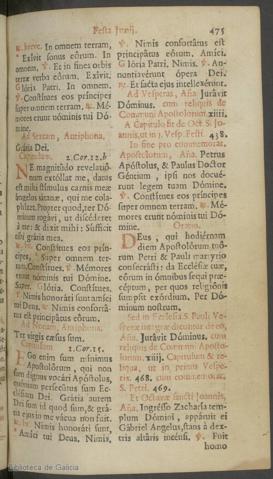 Festa Junij. 475
℟. breve. In omnem terram,
* Exivit sonus eórum. In
omnem. ℣. Et in fines orbis
terræ verba eórum. Exivit.
Glória Patri. In omnem.
℣. Constítues eos príncipes
super omnem terram. ℟. Mé-
mores erunt nóminis tui Dó-
mine.
Ad Sextam, Antiphona.
Grátia Dei.
Capitulum. 2. Cor. 12. b
NE magnitúdo revelatió-
num extóllat me, datus
est mihi stímulus carnis meæ
ángelus sátanæ, qui me cola-
phízet. Propter quod, ter Dó-
minum rogávi, ut discéderet
à me: & dixit mihi: Súfficit
tibi grátia mea.
Constítues eos prínci-
pes, * Super omnem ter-
ram. Constítues. ℣. Mémores
erunt nóminis tui Dómine.
Super. Glória. Constítues.
℣. Nimis honoráti sunt amíci
tui Deus. ℟. Nimis confortá-
tus est principátus eórum.
Ad Nonam, Antiphona.
Ter virgis cæsus sum.
Capitulum 1. Cor. 15.
EGo enim sum mínimus
Apostolórum, qui non
sum dignus vocári Apóstolus,
quóniam persecútus sum Ec-
clésiam Dei. Grátia autem
Dei sum id quod sum, & grá-
tia ejus in me vácua non fuit.
Nimis honoráti sunt,
* Amíci tui Deus. Nimis.
℣. Nimis confortátus est
principátus eórum. Amíci.
Glória Patri. Nimis. ℣. An-
nuntiavérunt ópera Dei.
℟. Et facta ejus intellexérunt.
Ad Vesperas, Aña. Jurávit
Dóminus. cum reliquis de
Communi Apostolorum. xiiij.
A Capitulo fit de Oct. S. Jo-
annis, ut in j. Vesp. Festi. 438.
In fine pro commemorat.
Apostolorum, Aña. Petrus
Apóstolus, & Paulus Doctor
Géntium, ipsi nos docué-
runt legem tuam Dómine.
℣. Constítues eos príncipes
super omnem terram. ℟. Mé-
mores erunt nóminis tui Dó-
mine. Oratio.
DEus, qui hodiérnam
diem Apostolórum tuó-
rum Petri & Pauli martyrio
consecrásti: da Ecclésiæ tuæ,
eórum in ómnibus sequi præ-
céptum, per quos religiónis
sumpsit exórdium. Per Dó-
minum nostrum.
Sed in Ecclesia S. Pauli Ve-
speræ integræ dicuntur de eo,
Aña. Jurávit Dóminus, cum
reliquis de Communi Aposto-
lorum. xiij. Capitulum & re-
liqua, ut in primis Vespe-
ris. 468. cum commemorat.
S. Petri. 469.
Et Octavæ sancti Joannis,
Aña. Ingrésso Zacharía tem-
plum Dómini, appáruit ei
Gábriel Angelus, stans à dex-
tris altáris incénsi. ℣. Fuit
homo
Biblioteca de Galicia